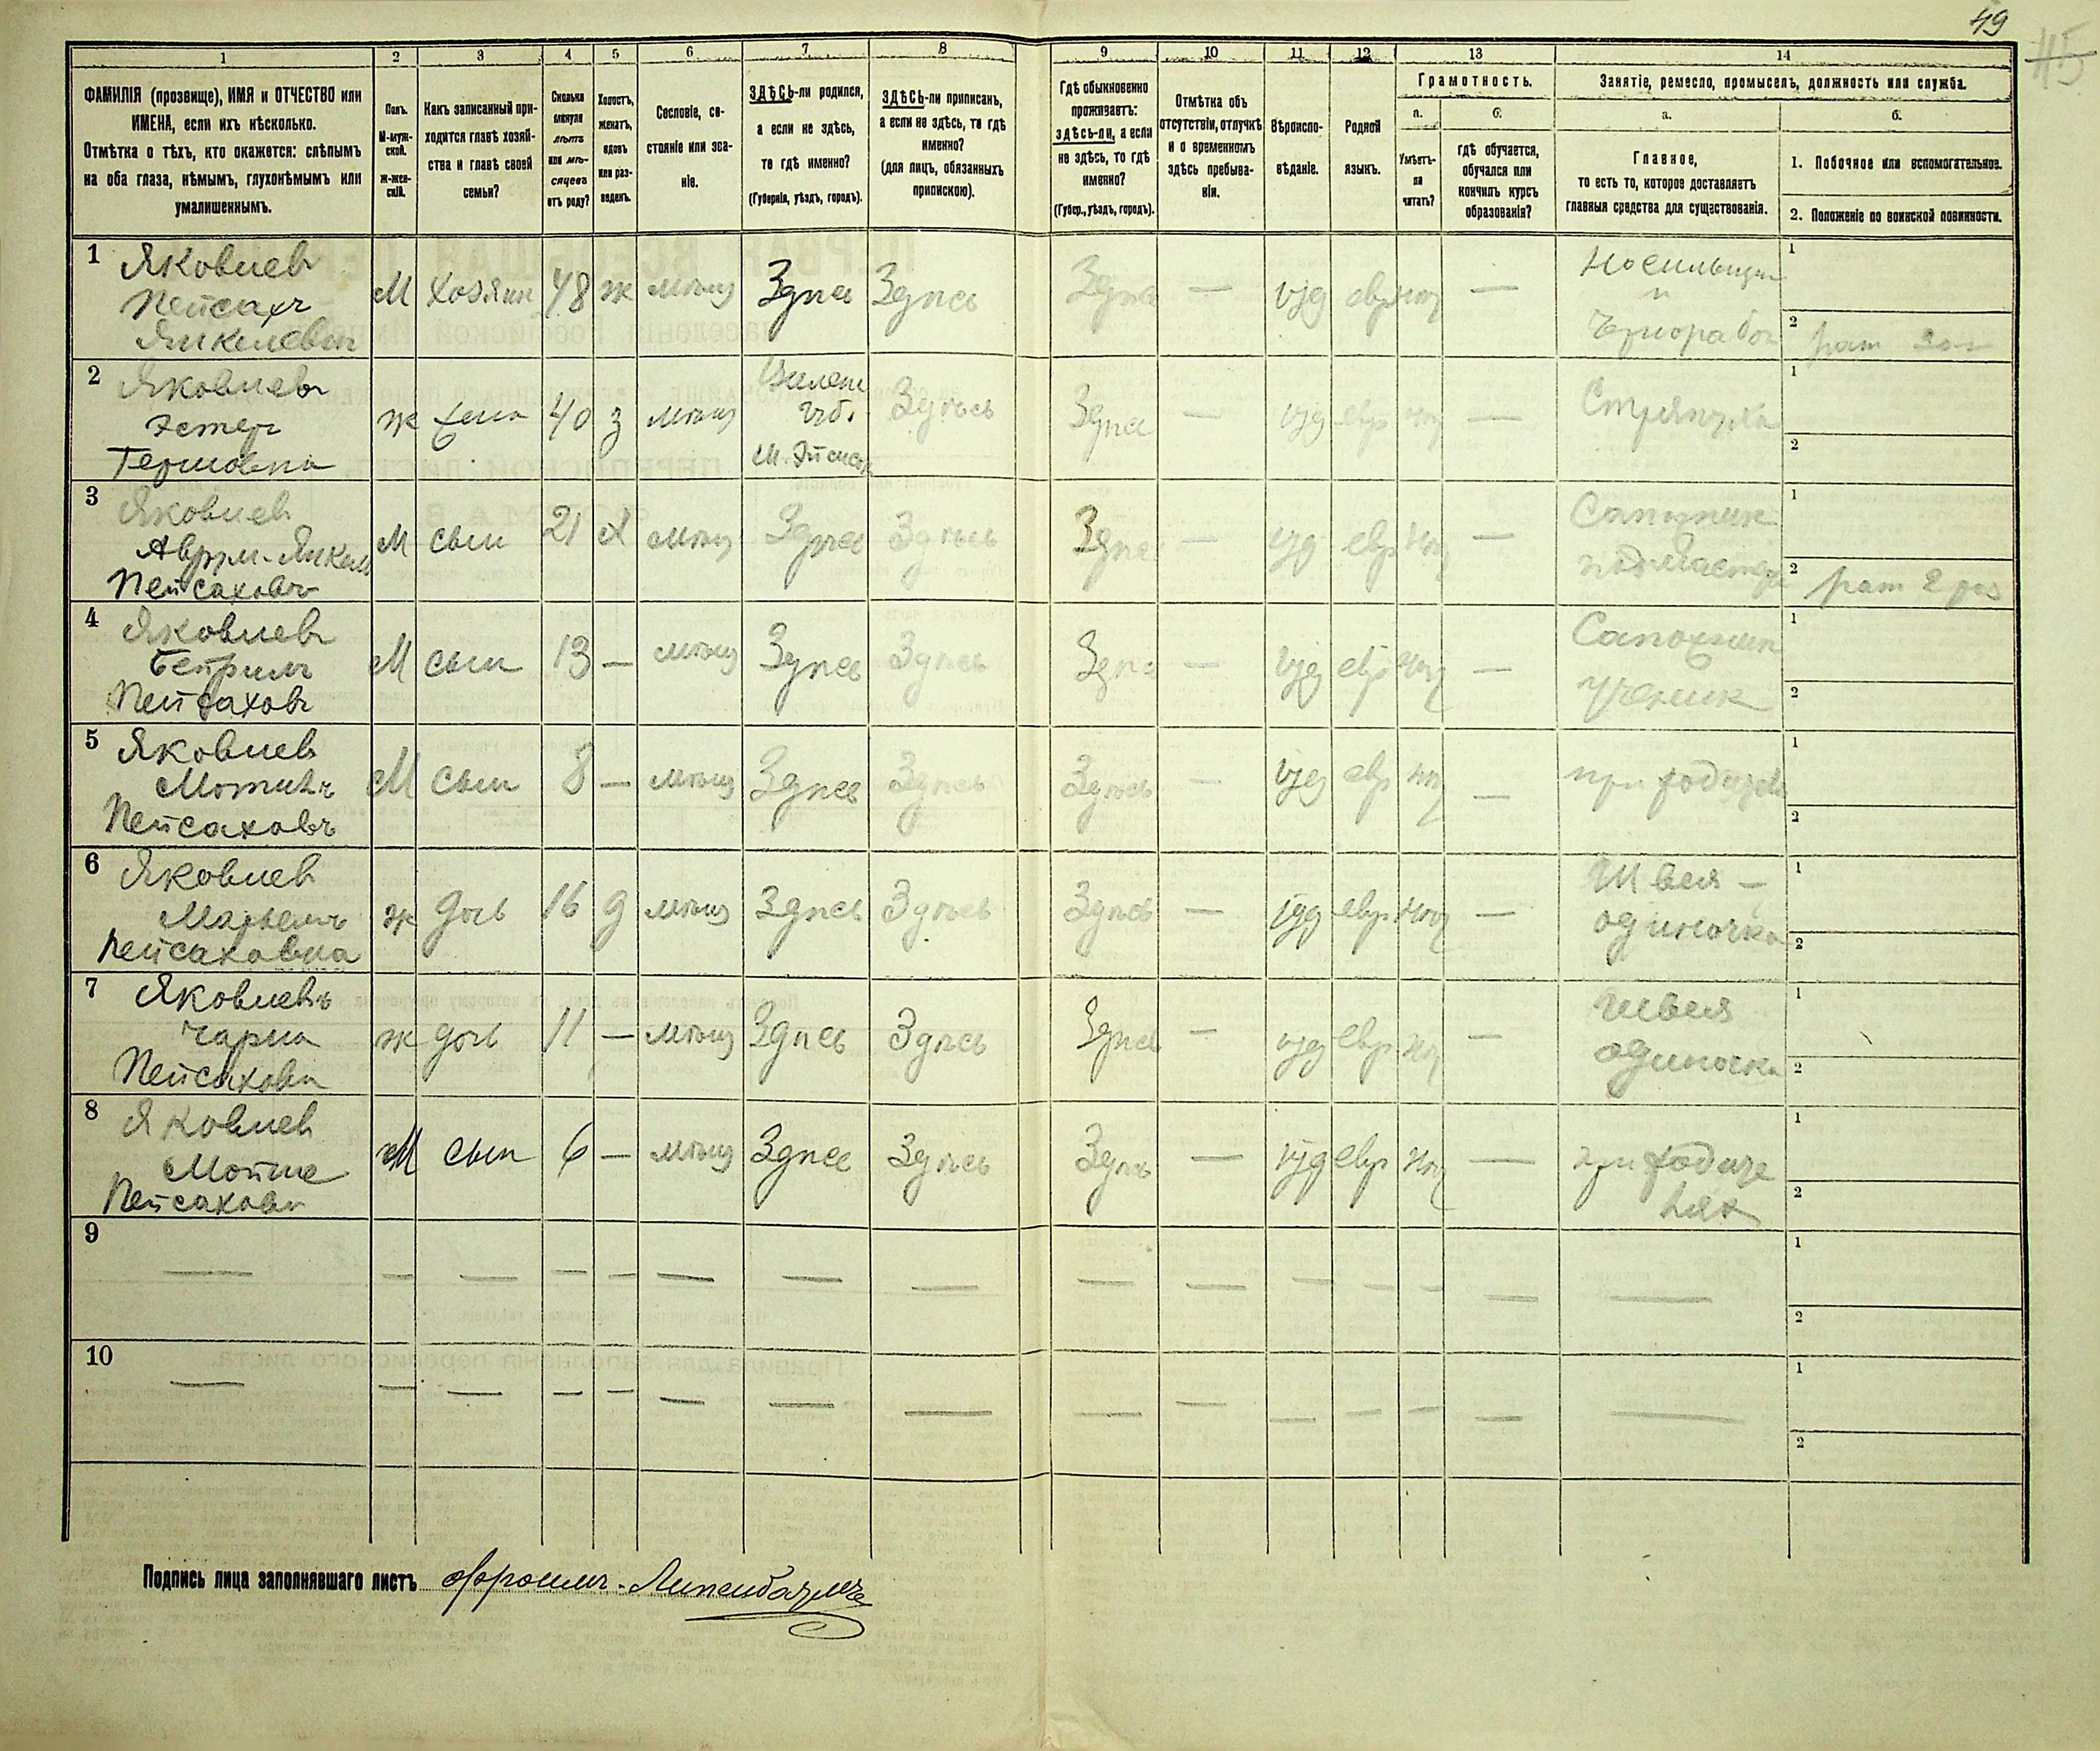 49
45
1 2 3 4 5 6 7 8 9 10 11 12 13 14
ФАМИЛІЯ (прозвище), ИМЯ и ОТЧЕСТВО или
ИМЕНА, если ихъ нѣсколько.
Отмѣтка о тѣхъ, кто окажется: слѣпымъ
на оба глаза, нѣмымъ, глухонѣмымъ или
умалишеннымъ.
Полъ.
М-муж-
ской.
ж-жен-
скій.
Какъ записанный при-
ходится главѣ хозяй-
ства и главѣ своей
семьи?
Сколько
минуло
лѣтъ
или мѣ-
сяцевъ
отъ роду?
Холостъ,
женатъ,
вдовъ
или раз-
веденъ.
Сословіе, со-
стояніе или зва-
ніе.
ЗДѢСЬ-ли родился,
а если не здѣсь,
то гдѣ именно?
(Губернія, уѣздъ, городъ).
ЗДѢСЬ-ли приписанъ,
а если не здѣсь, то гдѣ
именно?
(для лицъ, обязанныхъ
припискою).
Гдѣ обыкновенно
проживаетъ:
здѣсь-ли, а если
не здѣсь, то гдѣ
именно?
(Губер., уѣздъ, городъ).
Отмѣтка объ
отсутствіи, отлучкѣ
и о временномъ
здѣсь пребыва-
ніи.
Вѣроиспо-
вѣданіе.
Родной
языкъ.
Грамотность.
а.
Умѣетъ-
ли
читать?
б.
гдѣ обучается,
обучался или
кончилъ курсъ
образованія?
Занятіе, ремесло, промыселъ, должность или служба.
а.
Главное,
то есть то, которое доставляетъ
главныя средства для существованія.
б.
1. Побочное или вспомогательное.
2. Положеніе по воинской повинности.
1 Яковлев
Пейсахъ
Янкелевич
М хозяин 48 ж мѣщ Здѣсь Здѣсь Здѣсь — іуд евр нѣт —
Носильщик
и
Чернорабоч
1
2 рат
2 Яковлевъ
Эстер
ж жена 40 з мѣщ
Виленс
губ.
Здѣсь Здѣсь — іуд евр нѣт — Стряпуха
1
2
3 Яковлев
Аврум-Янкель
Пейсаховъ
М сын 21 Х мѣщ Здѣсь Здѣсь Здѣсь — іуд евр нѣт —
Сапожник
подмастер
1
2 рат 2 раз
4 Яковлевъ
Пейсаховъ
М сын 13 — мѣщ Здѣсь Здѣсь Здѣсь — іуд евр нѣт —
Сапожник
ученик
1
2
5 Яковлев
Пейсаховъ
М сын 8 — мѣщ Здѣсь Здѣсь Здѣсь — іуд евр нѣт — при родител
1
2
6 Яковлев
Пейсаховна
ж дочь 16 д мѣщ Здѣсь Здѣсь Здѣсь — іуд евр нѣт —
Швея —
одиночка
1
2
7 Яковлевъ
Чарна
Пейсаховн
ж дочь 11 — мѣщ Здѣсь Здѣсь Здѣсь — іуд евр нѣт —
Швея
одиночка
1
2
8 Яковлев
Мойше
Пейсахови
М сын 6 — мѣщ Здѣсь Здѣсь Здѣсь — іуд евр нѣт —
при родите
лях
1
2
9 — — — — — — — — — — — — — — —
1
2
10 — — — — — — — — — — — — — — —
1
2
Подпись лица заполнявшаго листъ